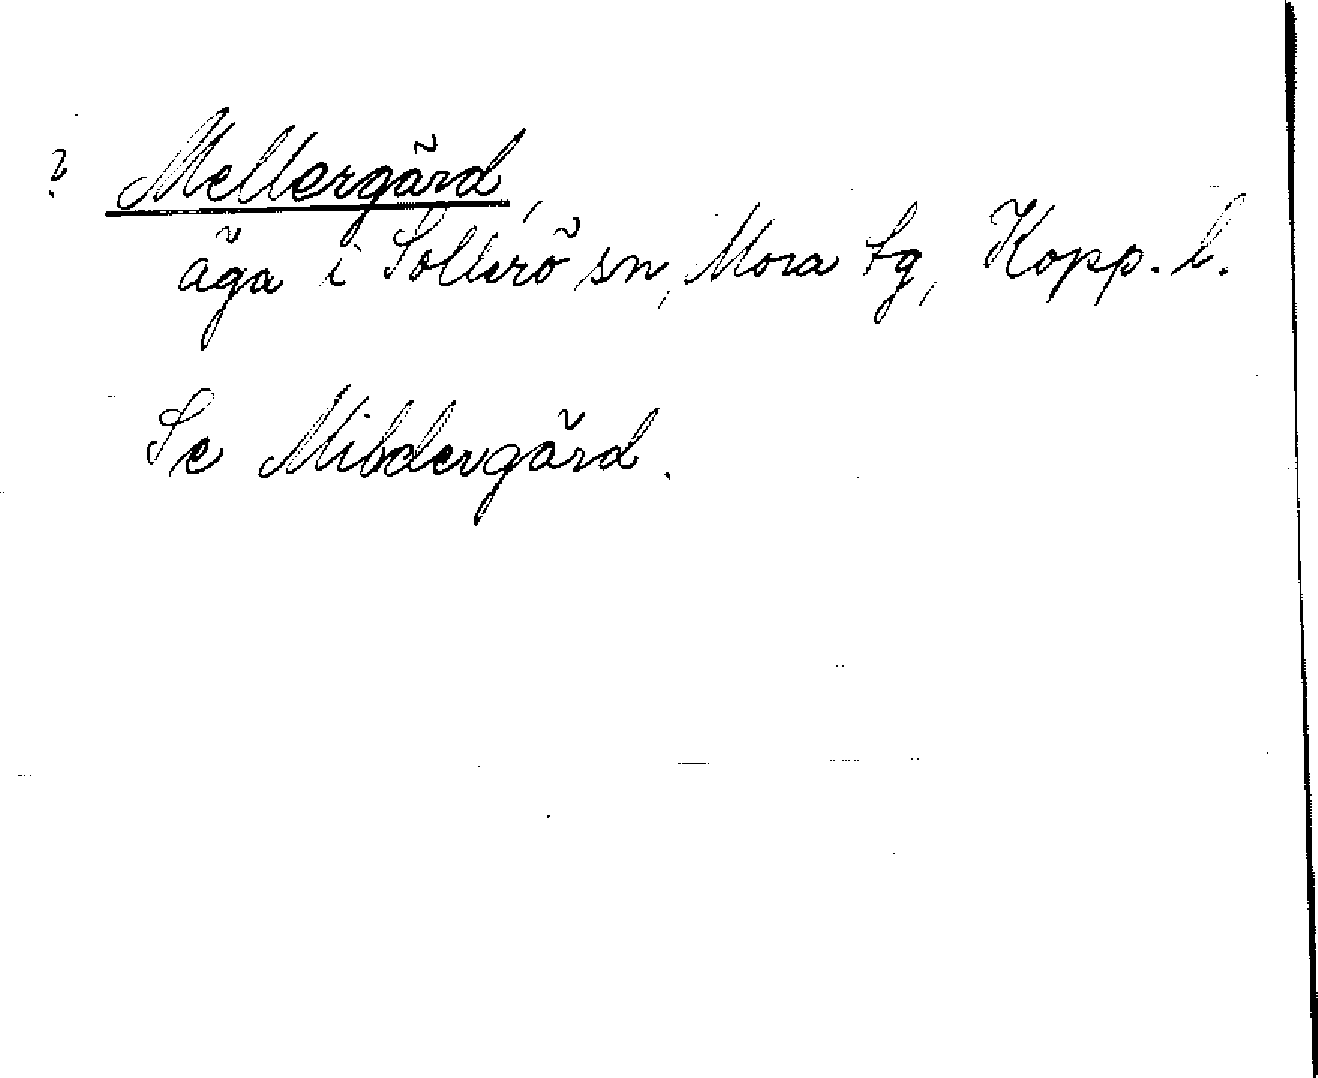 ? Mellergård,
äga i Sollerö sn, Mora tg, Kopp. l.
Se Mibdergård.